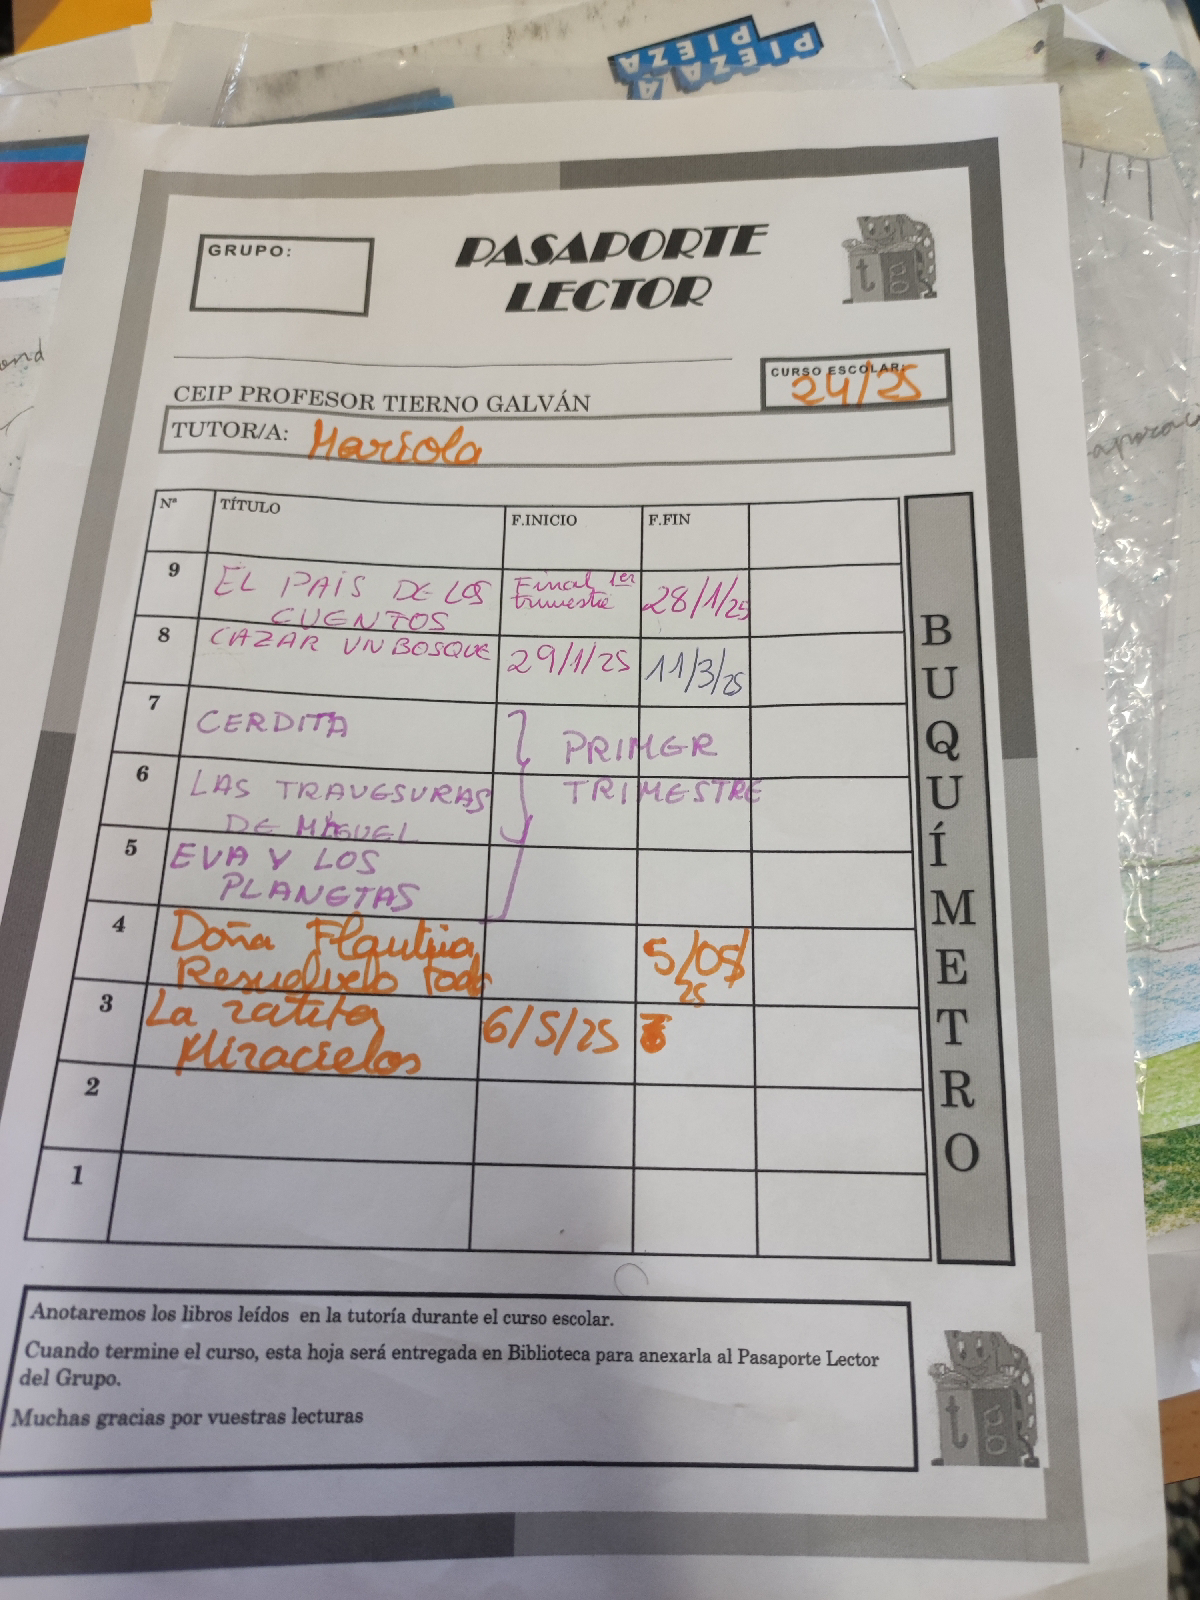 PIEZA
PIEZA
GRUPO:
PASAPORTE
LECTOR
CURSO ESCOLAR:
24/25
CEIP PROFESOR TIERNO GALVÁN
TUTOR/A: Mariola
Nª TÍTULO F.INICIO F.FIN
9 EL PAÍS DE LOS CUENTOS Final 1er trimestre 28/1/25
8 CAZAR UN BOSQUE 29/1/25 11/3/25
7 CERDITA PRIMER
6 LAS TRAVESURAS DE MIGUEL TRIMESTRE
5 EVA Y LOS PLANETAS
4 Doña Resuelvelo todo 5/05/25
3 La ratita Miracielos 6/5/25
2
1
BUQUÍMETRO
Anotaremos los libros leídos en la tutoría durante el curso escolar.
Cuando termine el curso, esta hoja será entregada en Biblioteca para anexarla al Pasaporte Lector
del Grupo.
Muchas gracias por vuestras lecturas